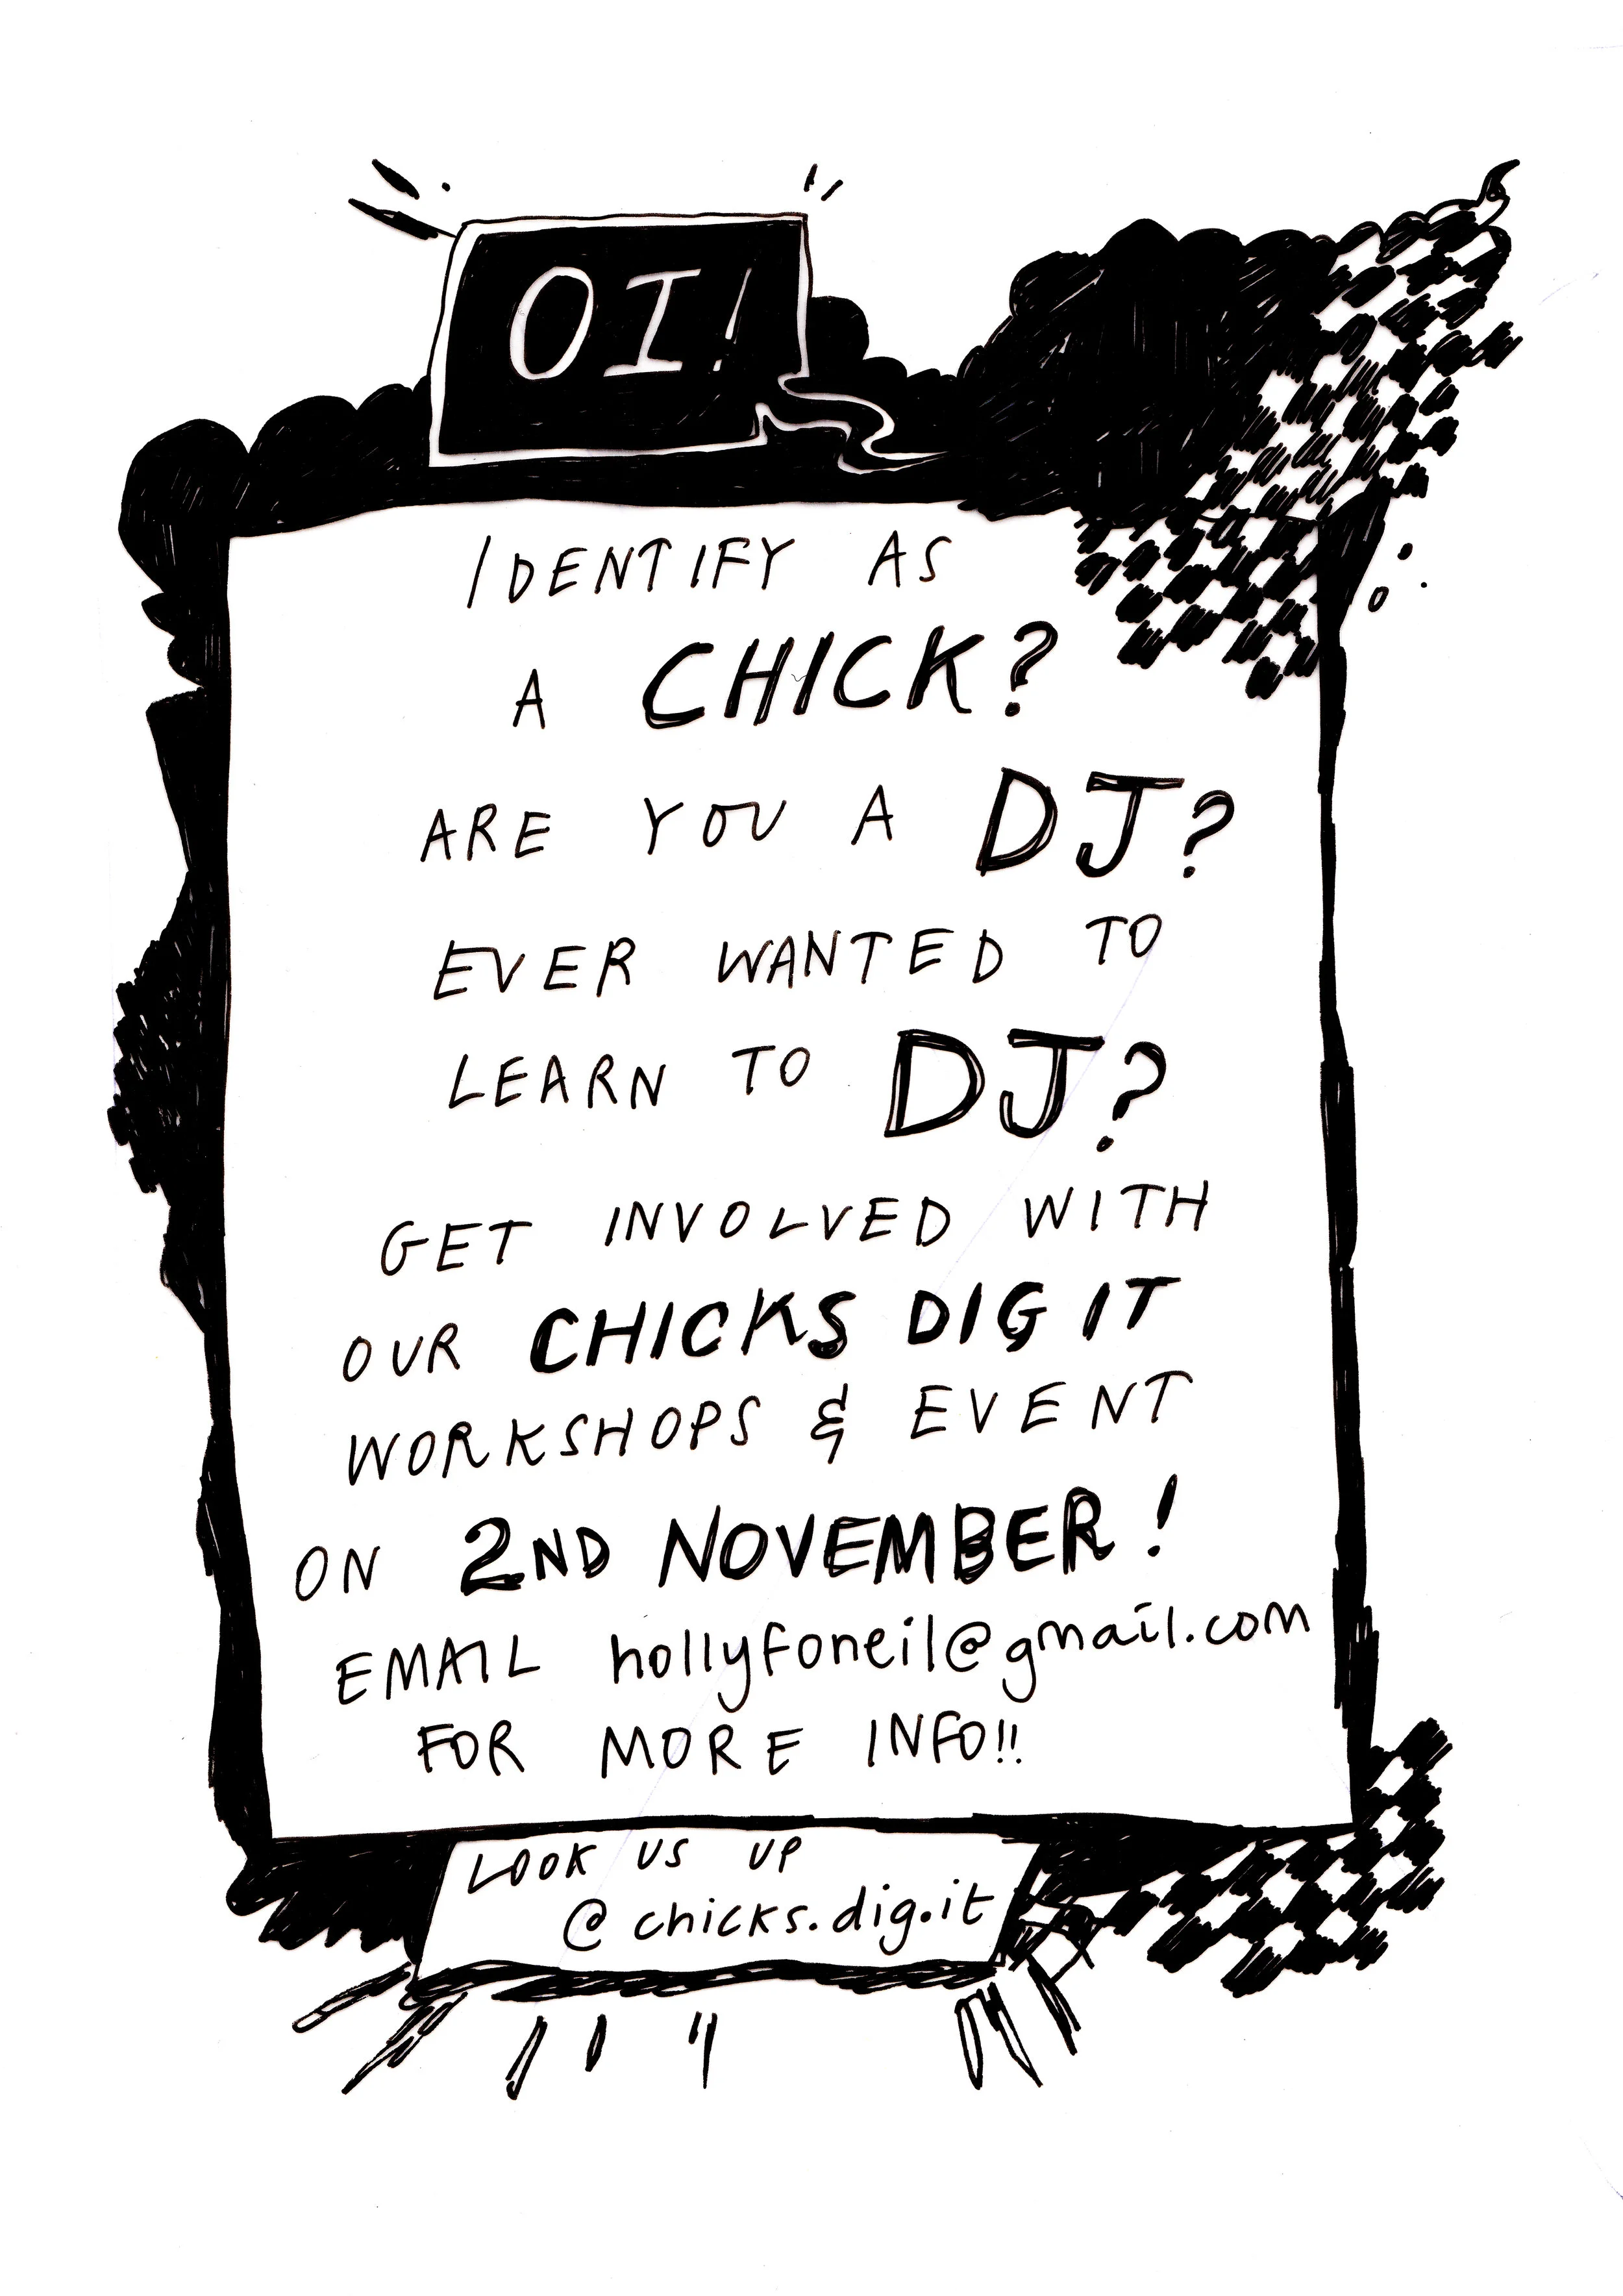 OI!
IDENTIFY AS
A CHICK?
ARE YOU A DJ?
EVER WANTED TO
LEARN TO DJ?
GET INVOLVED WITH
OUR CHICKS DIG IT
WORKSHOPS & EVENT
ON 2ND NOVEMBER!
EMAIL hollyfoneil@gmail.com
FOR MORE INFO!!
LOOK US UP
@chicks.dig.it